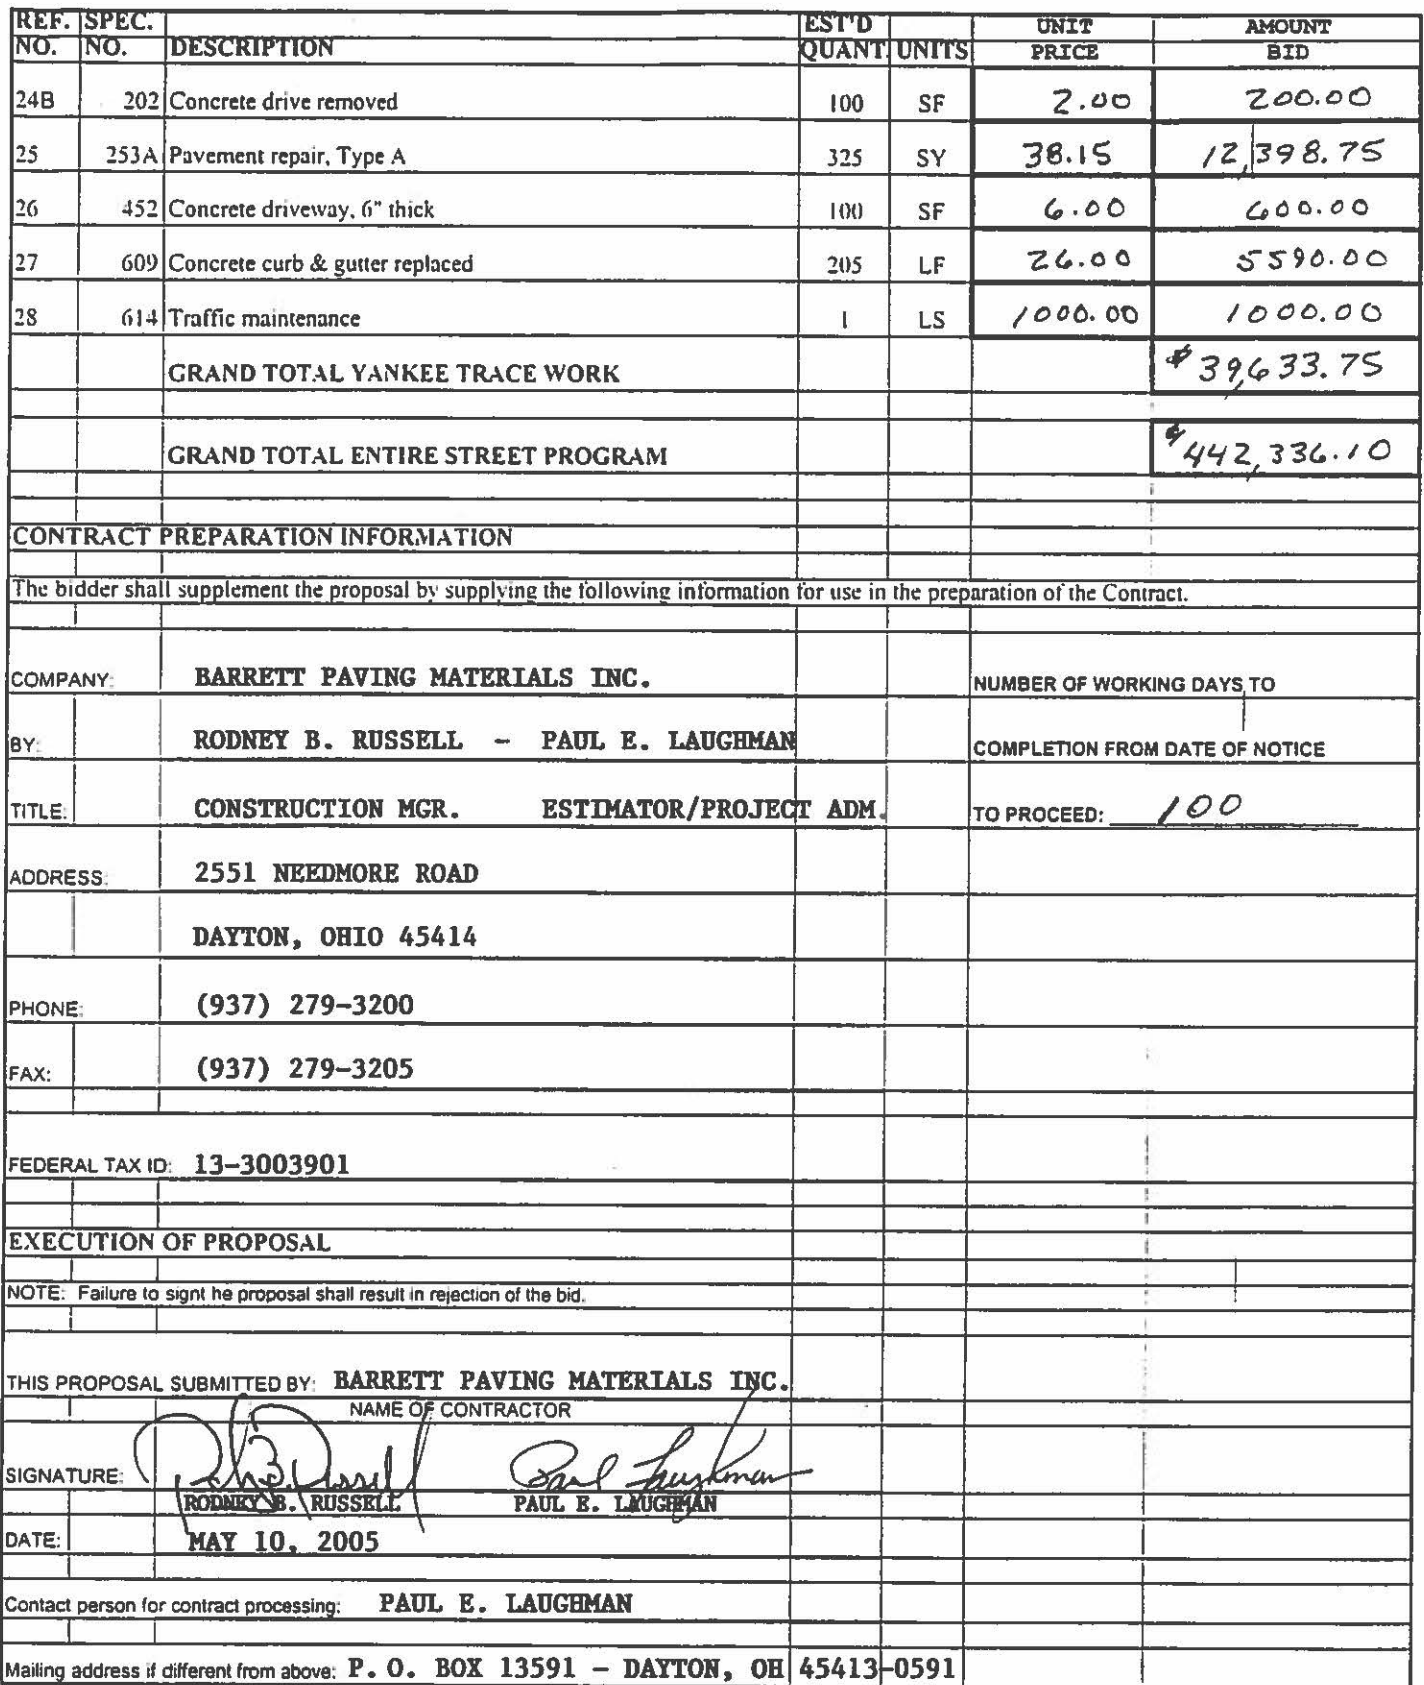 REF. SPEC. EST'D UNIT AMOUNT
NO. NO. DESCRIPTION QUANT. UNITS PRICE BID
24B 202 Concrete drive removed 100 SF 2.00 200.00
25 253A Pavement repair, Type A 325 SY 38.15 12,398.75
26 452 Concrete driveway, 6" thick 100 SF 6.00 600.00
27 609 Concrete curb & gutter replaced 205 LF 26.00 5590.00
28 614 Traffic maintenance 1 LS 1000.00 1000.00
GRAND TOTAL YANKEE TRACE WORK $39,633.75
GRAND TOTAL ENTIRE STREET PROGRAM $442,336.10
CONTRACT PREPARATION INFORMATION
The bidder shall supplement the proposal by supplying the following information for use in the preparation of the Contract.
COMPANY: BARRETT PAVING MATERIALS INC. NUMBER OF WORKING DAYS TO
BY: RODNEY B. RUSSELL - PAUL E. LAUGHMAN COMPLETION FROM DATE OF NOTICE
TITLE: CONSTRUCTION MGR. ESTIMATOR/PROJECT ADM. TO PROCEED: 100
ADDRESS: 2551 NEEDMORE ROAD
DAYTON, OHIO 45414
PHONE: (937) 279-3200
FAX: (937) 279-3205
FEDERAL TAX ID: 13-3003901
EXECUTION OF PROPOSAL
NOTE: Failure to signt he proposal shall result in rejection of the bid.
THIS PROPOSAL SUBMITTED BY: BARRETT PAVING MATERIALS INC.
NAME OF CONTRACTOR
SIGNATURE: Rodney B. Russell Paul Laughman
RODNEY B. RUSSELL PAUL E. LAUGHMAN
DATE: MAY 10, 2005
Contact person for contract processing: PAUL E. LAUGHMAN
Mailing address if different from above: P. O. BOX 13591 - DAYTON, OH 45413-0591